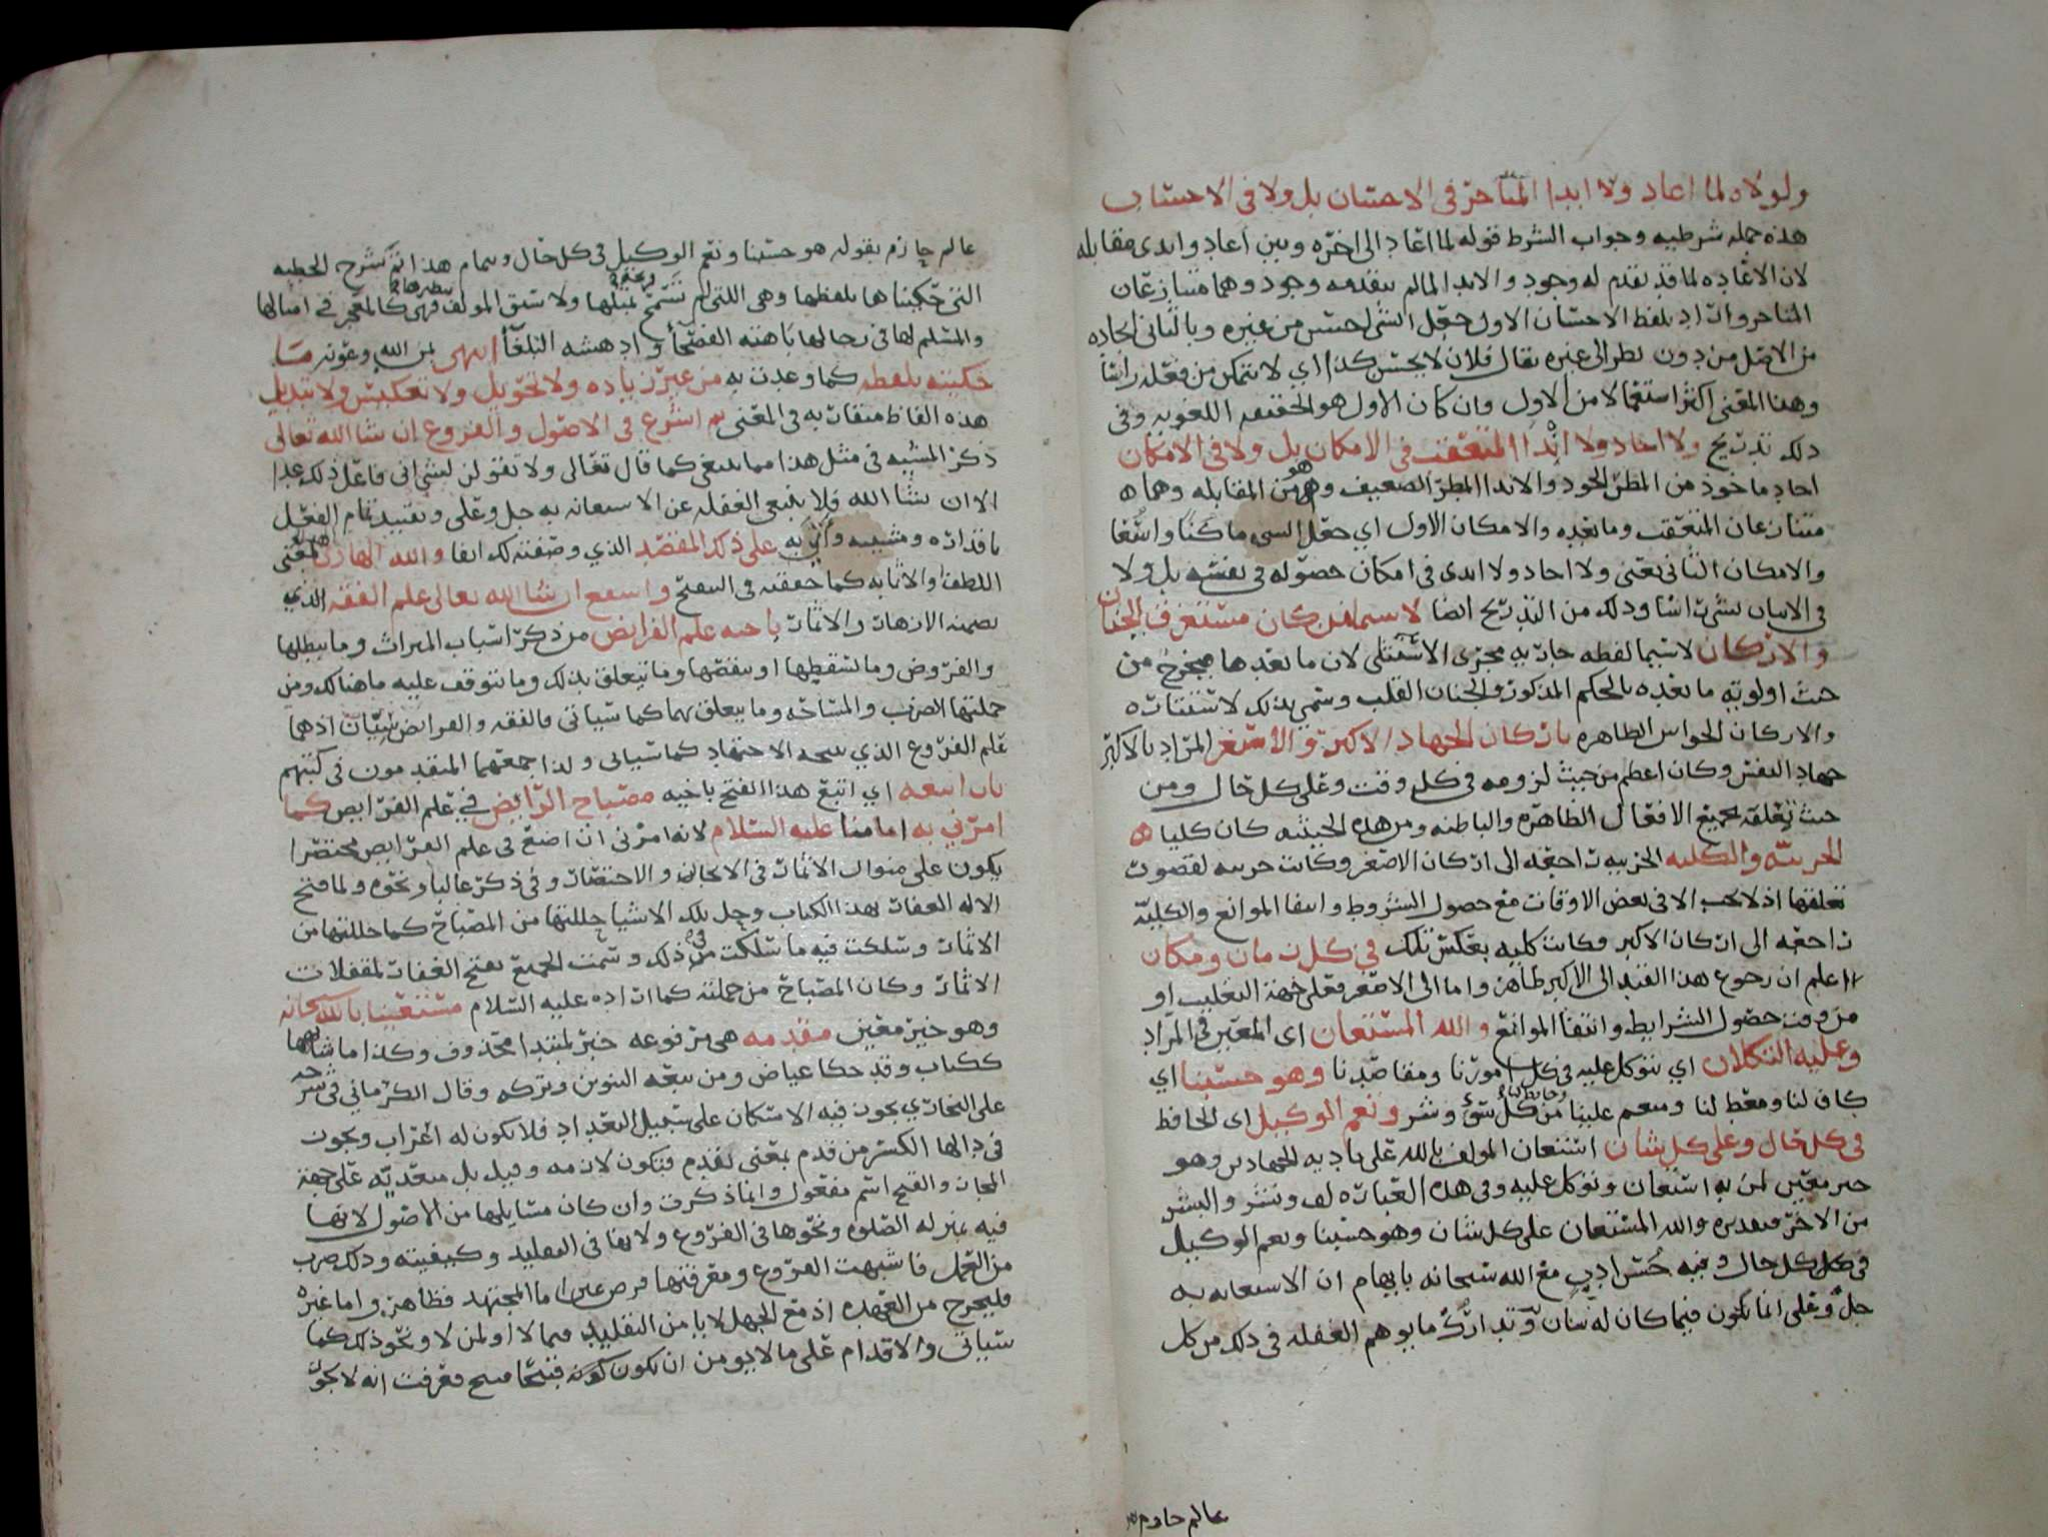 ولولاه لما اعاد ولا ابدا المتاخر في الاحسان بل ولا في الاحسان
هذه جمله شرطيه وجواب الشرط قوله لما اعاد الى اخره وبين اعاد وابدى مقابله
لان الاعاده لما قد تقدم له وجود والابدا لما لم يتقدمه وجود وهما متنازعان
المتاخر واراد بلفظ الاحسان الاول جعل الشي احسن من غيره وبالثاني ايجاده
من الاصل من دون نظر الى غيره يقال فلان لا يحسن كذا اي لا يتمكن من فعله راسا
وهذا المعنى اكثر استعمالا من الاول وان كان الاول هو الحقيقه اللغويه وفي
ذلك تدريج ولا اجاد ولا اندا المتعقب في الامكان بل ولا في الامكان
اجاد ماخوذ من المطر الجود والاندا المطر الضعيف وهو من المقابله وهما
متنازعان المتعقب وما بعده والامكان الاول اي جعل الشي ماكنا واسعا
والامكان الثاني يعني ولا اجاد ولا اندى في امكان حصوله في نفسه بل ولا
في الاتيان بشي راسا وذلك من التدريج ايضا لا سيما من كان مستغرق الجنان
والاركان لا سيما لفظه جاريه مجرى الاستثنى لان ما بعدها مخرج من
حيث اولويته ما بعده بالحكم المذكور والجنان القلب وسمي بذلك لاستتاره
والاركان الحواس الظاهره باركان الجهاد الاكبر والاصغر المراد بالاكبر
جهاد النفس وكان اعظم من حيث لزومه في كل وقت وعلى كل حال ومن
حيث تعلقه بجميع الافعال الظاهره والباطنه ومن هذه الحيثيه كان كليا
الجزييه والكليه الجزييه راجعه الى اركان الاصغر وكانت جزييه لقصور
تعلقها اذ لا يجب الا في بعض الاوقات مع حصول الشروط وانتفا الموانع والكليه
راجعه الى اركان الاكبر وكانت كليه بعكس تلك في كل زمان ومكان
اعلم ان رجوع هذا القيد الى الاكبر ظاهر واما الى الاصغر فعلى جهة التغليب او
من وقت حصول الشرايط وانتفا الموانع والله المستعان اي المعين في المراد
وعليه التكلان اي نتوكل عليه في كل امورنا ومقاصدنا وهو حسبنا اي
كاف لنا ومعط لنا ومنعم علينا وحايط لنا من كل شيء وشر ونعم الوكيل اي الحافظ
في كل حال وعلى كل شان استعان المولف بالله على تاديه الجهادين وهو
خير معين لمن به استعان وتوكل عليه وفي هذه العباره لف ونشر والنشر
من الاخر تقديره والله المستعان على كل شان وهو حسبنا ونعم الوكيل
في كل حال وفيه حسن ادب مع الله سبحانه بايهام ان الاستعانه به
جل وعلى انما تكون فيما كان له شان وتدارك ما يوهم الغفله في ذلك من كل
عالم جازم
عالم جازم بقوله هو حسبنا ونعم الوكيل في كل حال وبتمام هذا تم شرح الخطبه
التي حكيناها بلفظها وهي اللتي لم تسمح بمثلها ولا سبق المولف فهي كالمعجز في امثالها
والمسلم لها في رجالها باهته الفصحا وادهشه البلغا انتهى بمن الله وعونه ما
حكيته بلفظه كما وعدت به من غير زياده ولا تحويل ولا تعكيس ولا تبديل
هذه الفاظ متقاربه في المعنى ثم اشرع في الاصول والفروع ان شا الله تعالى
ذكر المشيه في مثل هذا مما ينبغي كما قال تعالى ولا تقولن لشي اني فاعل ذلك غدا
الا ان يشا الله فلا ينبغي الغفله عن الاستعانه به جل وعلى وتقييد تمام الفعل
باقداره ومشيته واني به على ذلك المقصد الذي وصفته لك انفا والله الهادي بمعنى
اللطف او الاثابه كما حققته في الفتح واسفع ان شا الله تعالى علم الفقه الذي
تضمنه الازهار والاثمار باخيه علم الفرايض من ذكر اسباب الميراث وما يبطلها
والفروض وما تسقطها او ينقصها وما يتعلق بذلك وما تتوقف عليه ما هنالك ومن
جملتها الضرب والمساحه وما يتعلق بهما كما سياتي فالفقه والفرايض سيان اذ هما
علم الفروع الذي نتيجه الاجتهاد كما سياتي ولذا جمعهما المتقدمون في كتبهم
بان اتبعه اي اتبع هذا الفتح باخيه مصباح الرايض في علم الفرايض كما
امرني به امامنا عليه السلام لانه امرني ان اضع في علم الفرايض مختصرا
يكون على منوال الاثمار في الايجاز والاختصار وفي ذكر غالبا ونحوه ولما فتح
الاله الغفار بهذا الكتاب وحل تلك الاشيا حللتها من المصباح كما حللتها من
الاثمار وسلكت فيه ما سلكت في ذلك وسميت الجميع بفتح الغفار لمقفلات
الاثمار وكان المصباح من جملته كما اراده عليه السلام مستعينا بالله سبحانه
وهو خير معين مقدمه هي مرفوعه خبر لمبتدا محذوف وكذا ما شابهها
ككتاب وقد حكا عياض ومن تبعه التنوين وتركه وقال الكرماني في شرحه
على البخاري يجوز فيه الاسكان على سبيل التعداد فلا يكون له اعراب ويجوز
في دالها الكسر من قدم بمعنى تقدم فتكون لازمه وقيل بل متعديه على جهة
المجاز والفتح اسم مفعول وانما ذكرت وان كان مسايلها من الاصول لانها
فيه بمنزله الصلوه ونحوها في الفروع ولانها في التقليد وكيفيته وذلك ضرب
من العمل فاشبهت الفروع ومعرفتها فرض عين اما المجتهد فظاهر واما غيره
فليخرج من العهده اذ مع الجهل لا يامن التقليد فيما لا او لمن لا ونحو ذلك كما
سياتي والاقدام على ما لا يومن ان يكون كونه قبيحا قبيح فعرفت انه لا يجوز